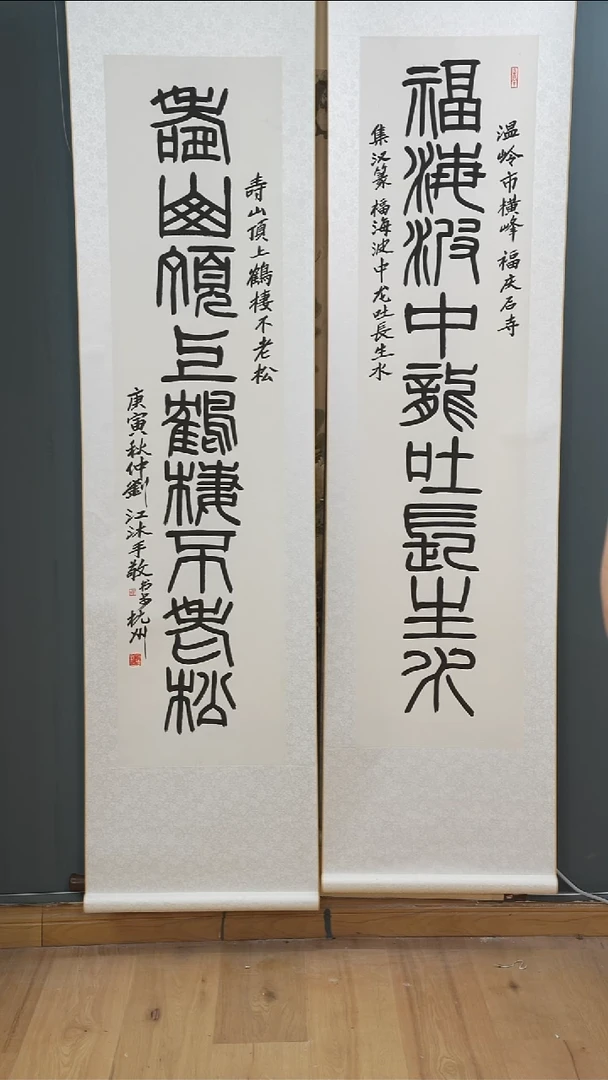 福海波中龍吐長生水
温岭市横峰 福庆石寺
集汉篆 福海波中龙吐長生水
壽山頂上鶴棲不老松
寿山頂上鶴棲不老松
庚寅秋仲劉江沐手敬书于杭州